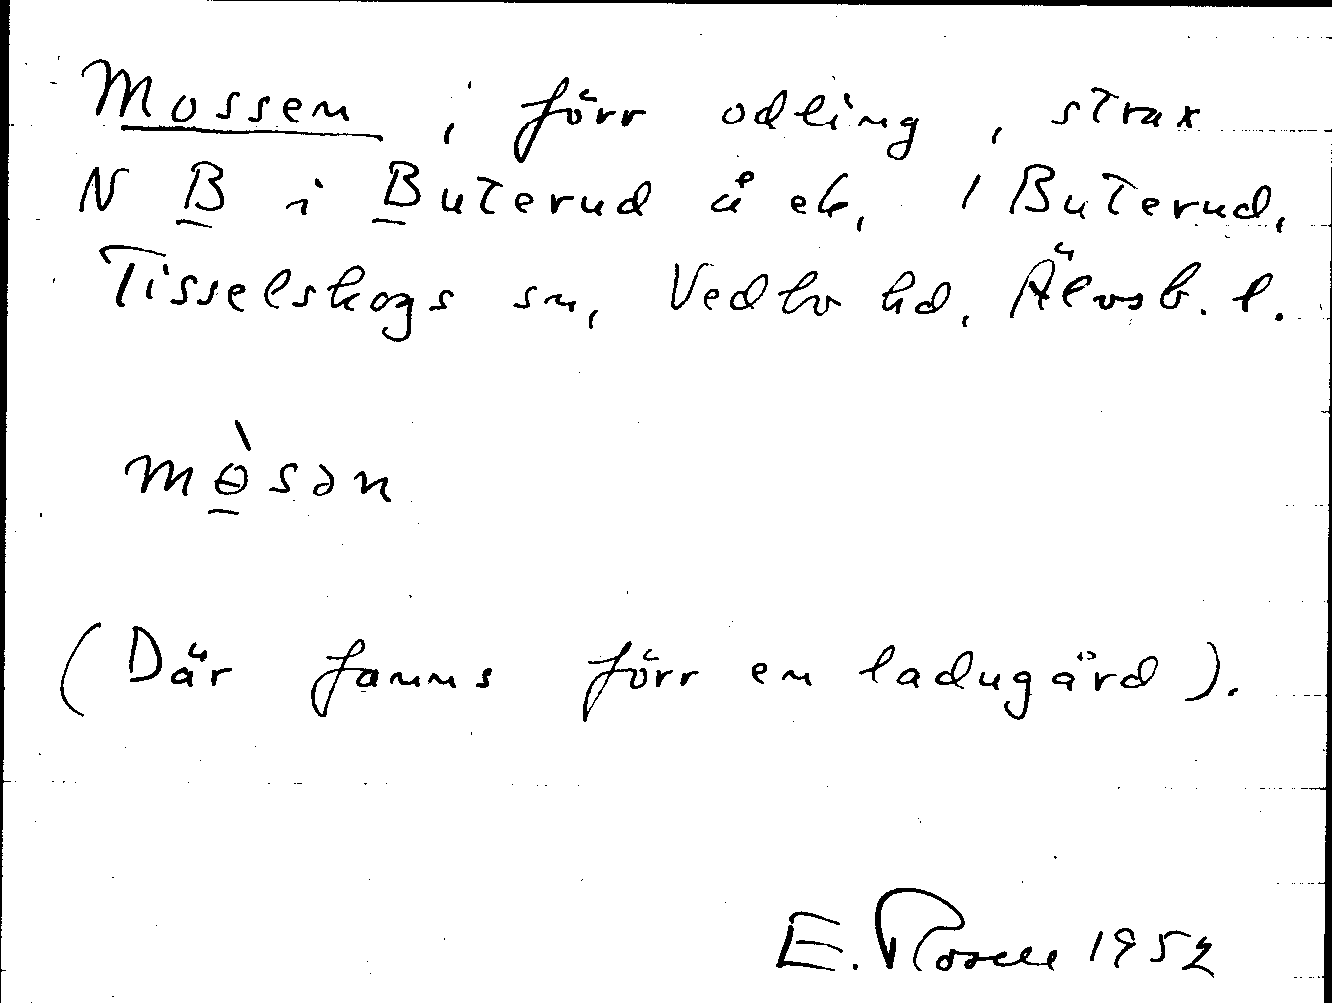 Mossen, förr odling, strax
N B i Buterud å ek, 1 Buterud,
Tisselskogs sn, Vedbo hd, Älvsb. l.
mɵ̀sən
(Där fanns förr en ladugård).
E. Rosell 1952